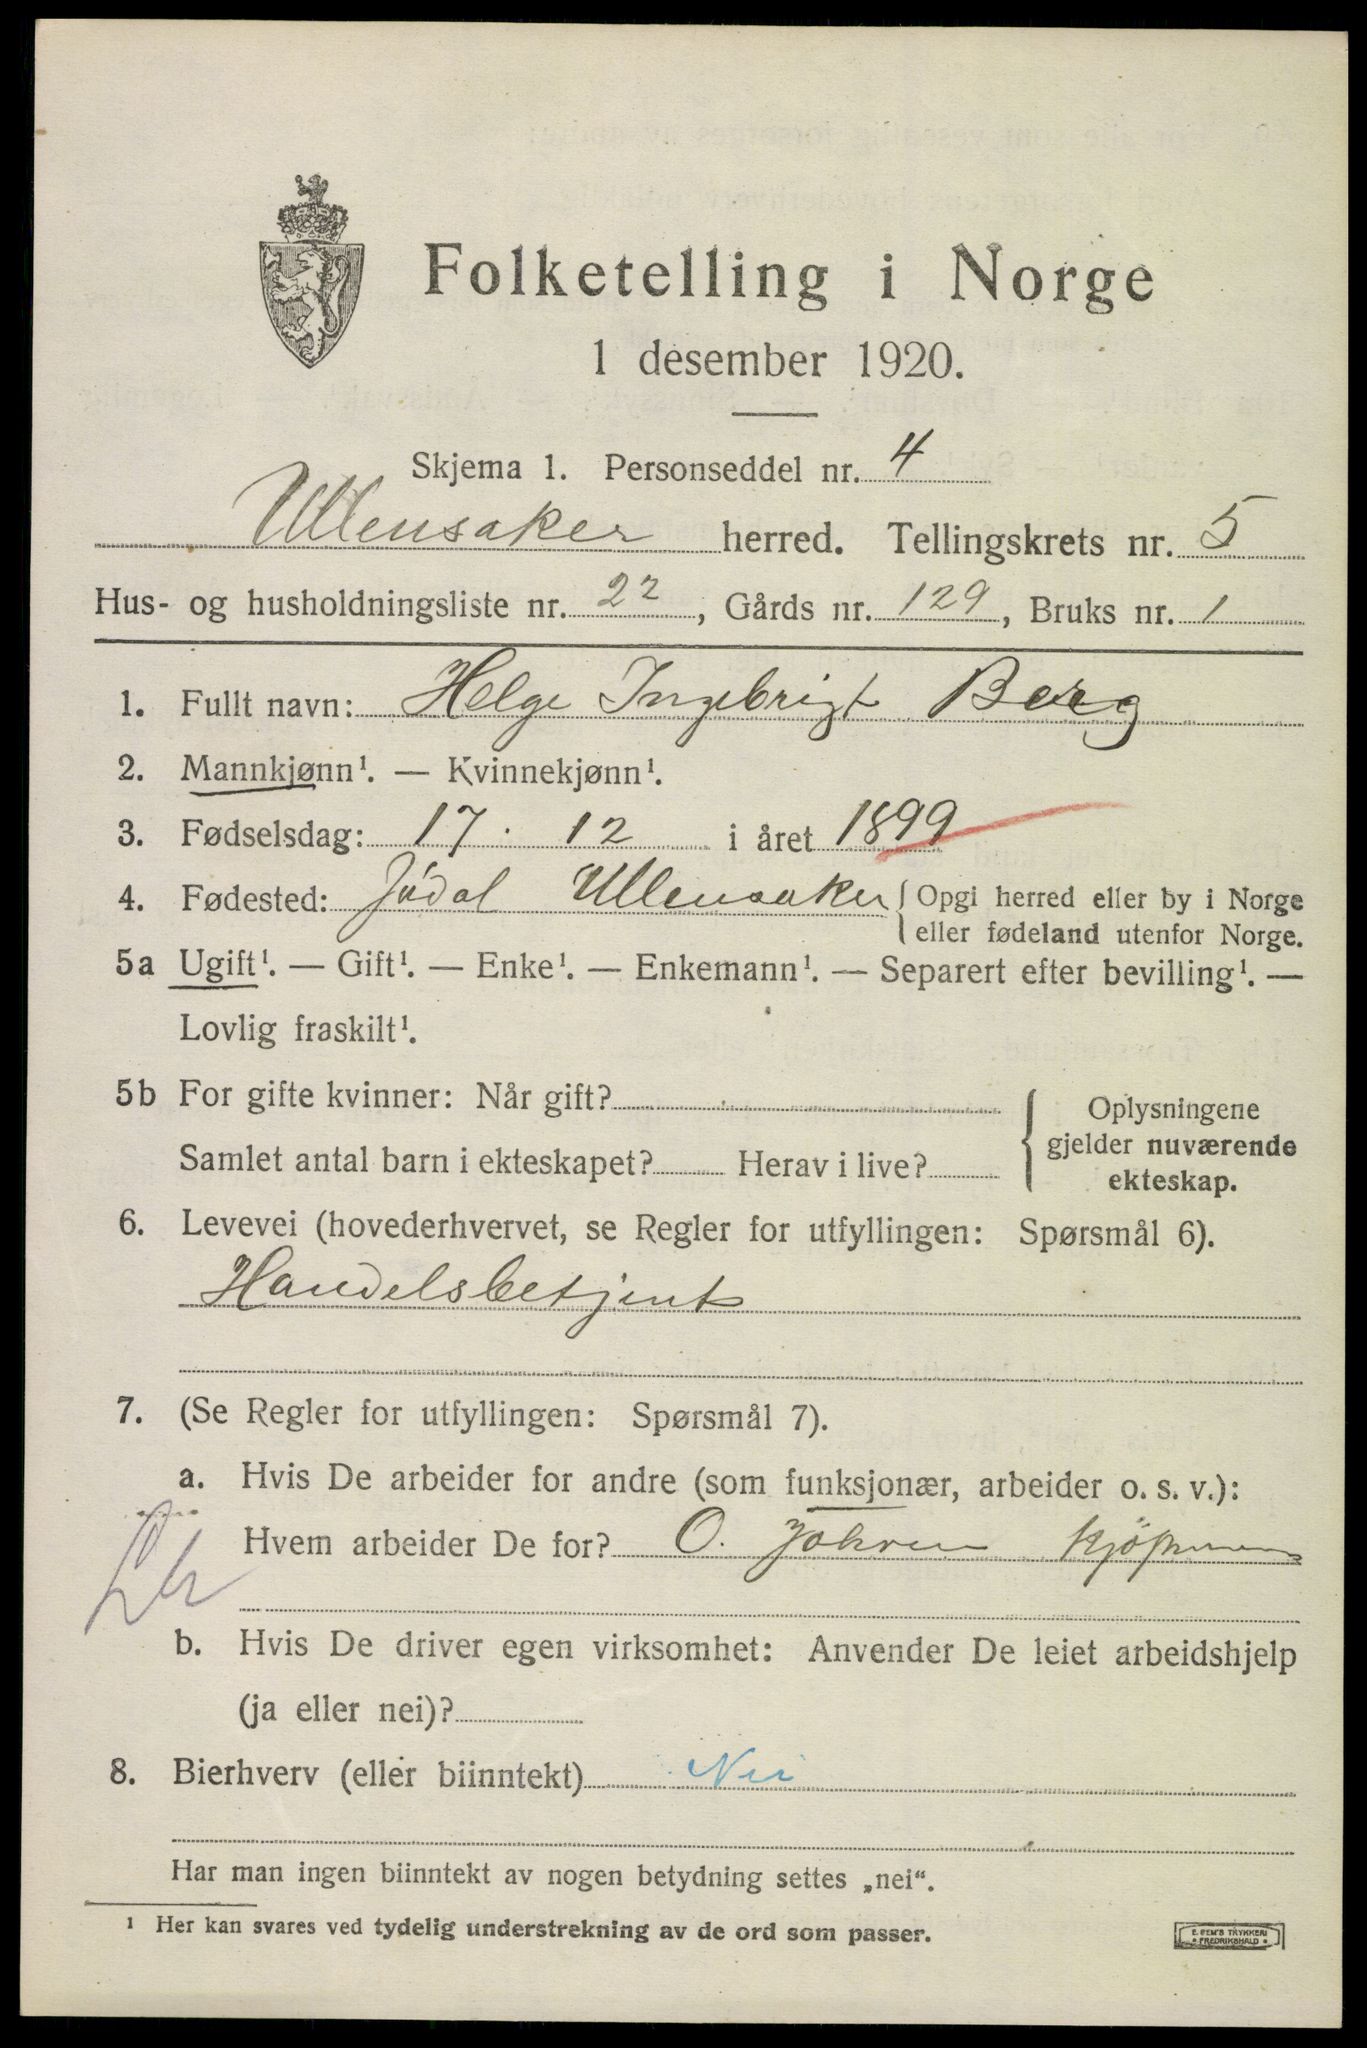 Folketelling i Norge
1 desember 1920.
Skjema 1. Personseddel nr. 4
Ullensaker herred. Tellingskrets nr. 5
Hus- og husholdningsliste nr. 22, Gårds nr. 129, Bruks nr. 1
1. Fullt navn: Helge Ingebrigt Berg
2. Mannkjønn¹. — Kvinnekjønn¹.
3. Fødselsdag: 17. 12 i året 1899
4. Fødested: Jödal Ullensaker { Opgi herred eller by i Norge
eller fødeland utenfor Norge.
5a Ugift¹. — Gift¹. — Enke¹. — Enkemann¹. — Separert efter bevilling¹. —
Lovlig fraskilt¹.
5b For gifte kvinner: Når gift?
Samlet antal barn i ekteskapet? Herav i live?
Oplysningene
gjelder nuværende
ekteskap.
6. Levevei (hovederhvervet, se Regler for utfyllingen: Spørsmål 6).
Handelsbetjent
7. (Se Regler for utfyllingen: Spørsmål 7).
a. Hvis De arbeider for andre (som funksjonær, arbeider o. s. v.):
Hvem arbeider De for? O.
b. Hvis De driver egen virksomhet: Anvender De leiet arbeidshjelp
(ja eller nei)?
8. Bierhverv (eller biinntekt) Nei
Har man ingen biinntekt av nogen betydning settes „nei“.
¹ Her kan svares ved tydelig understrekning av de ord som passer.
E. SEM'S TRYKKERI
• FREDRIKSHALD •